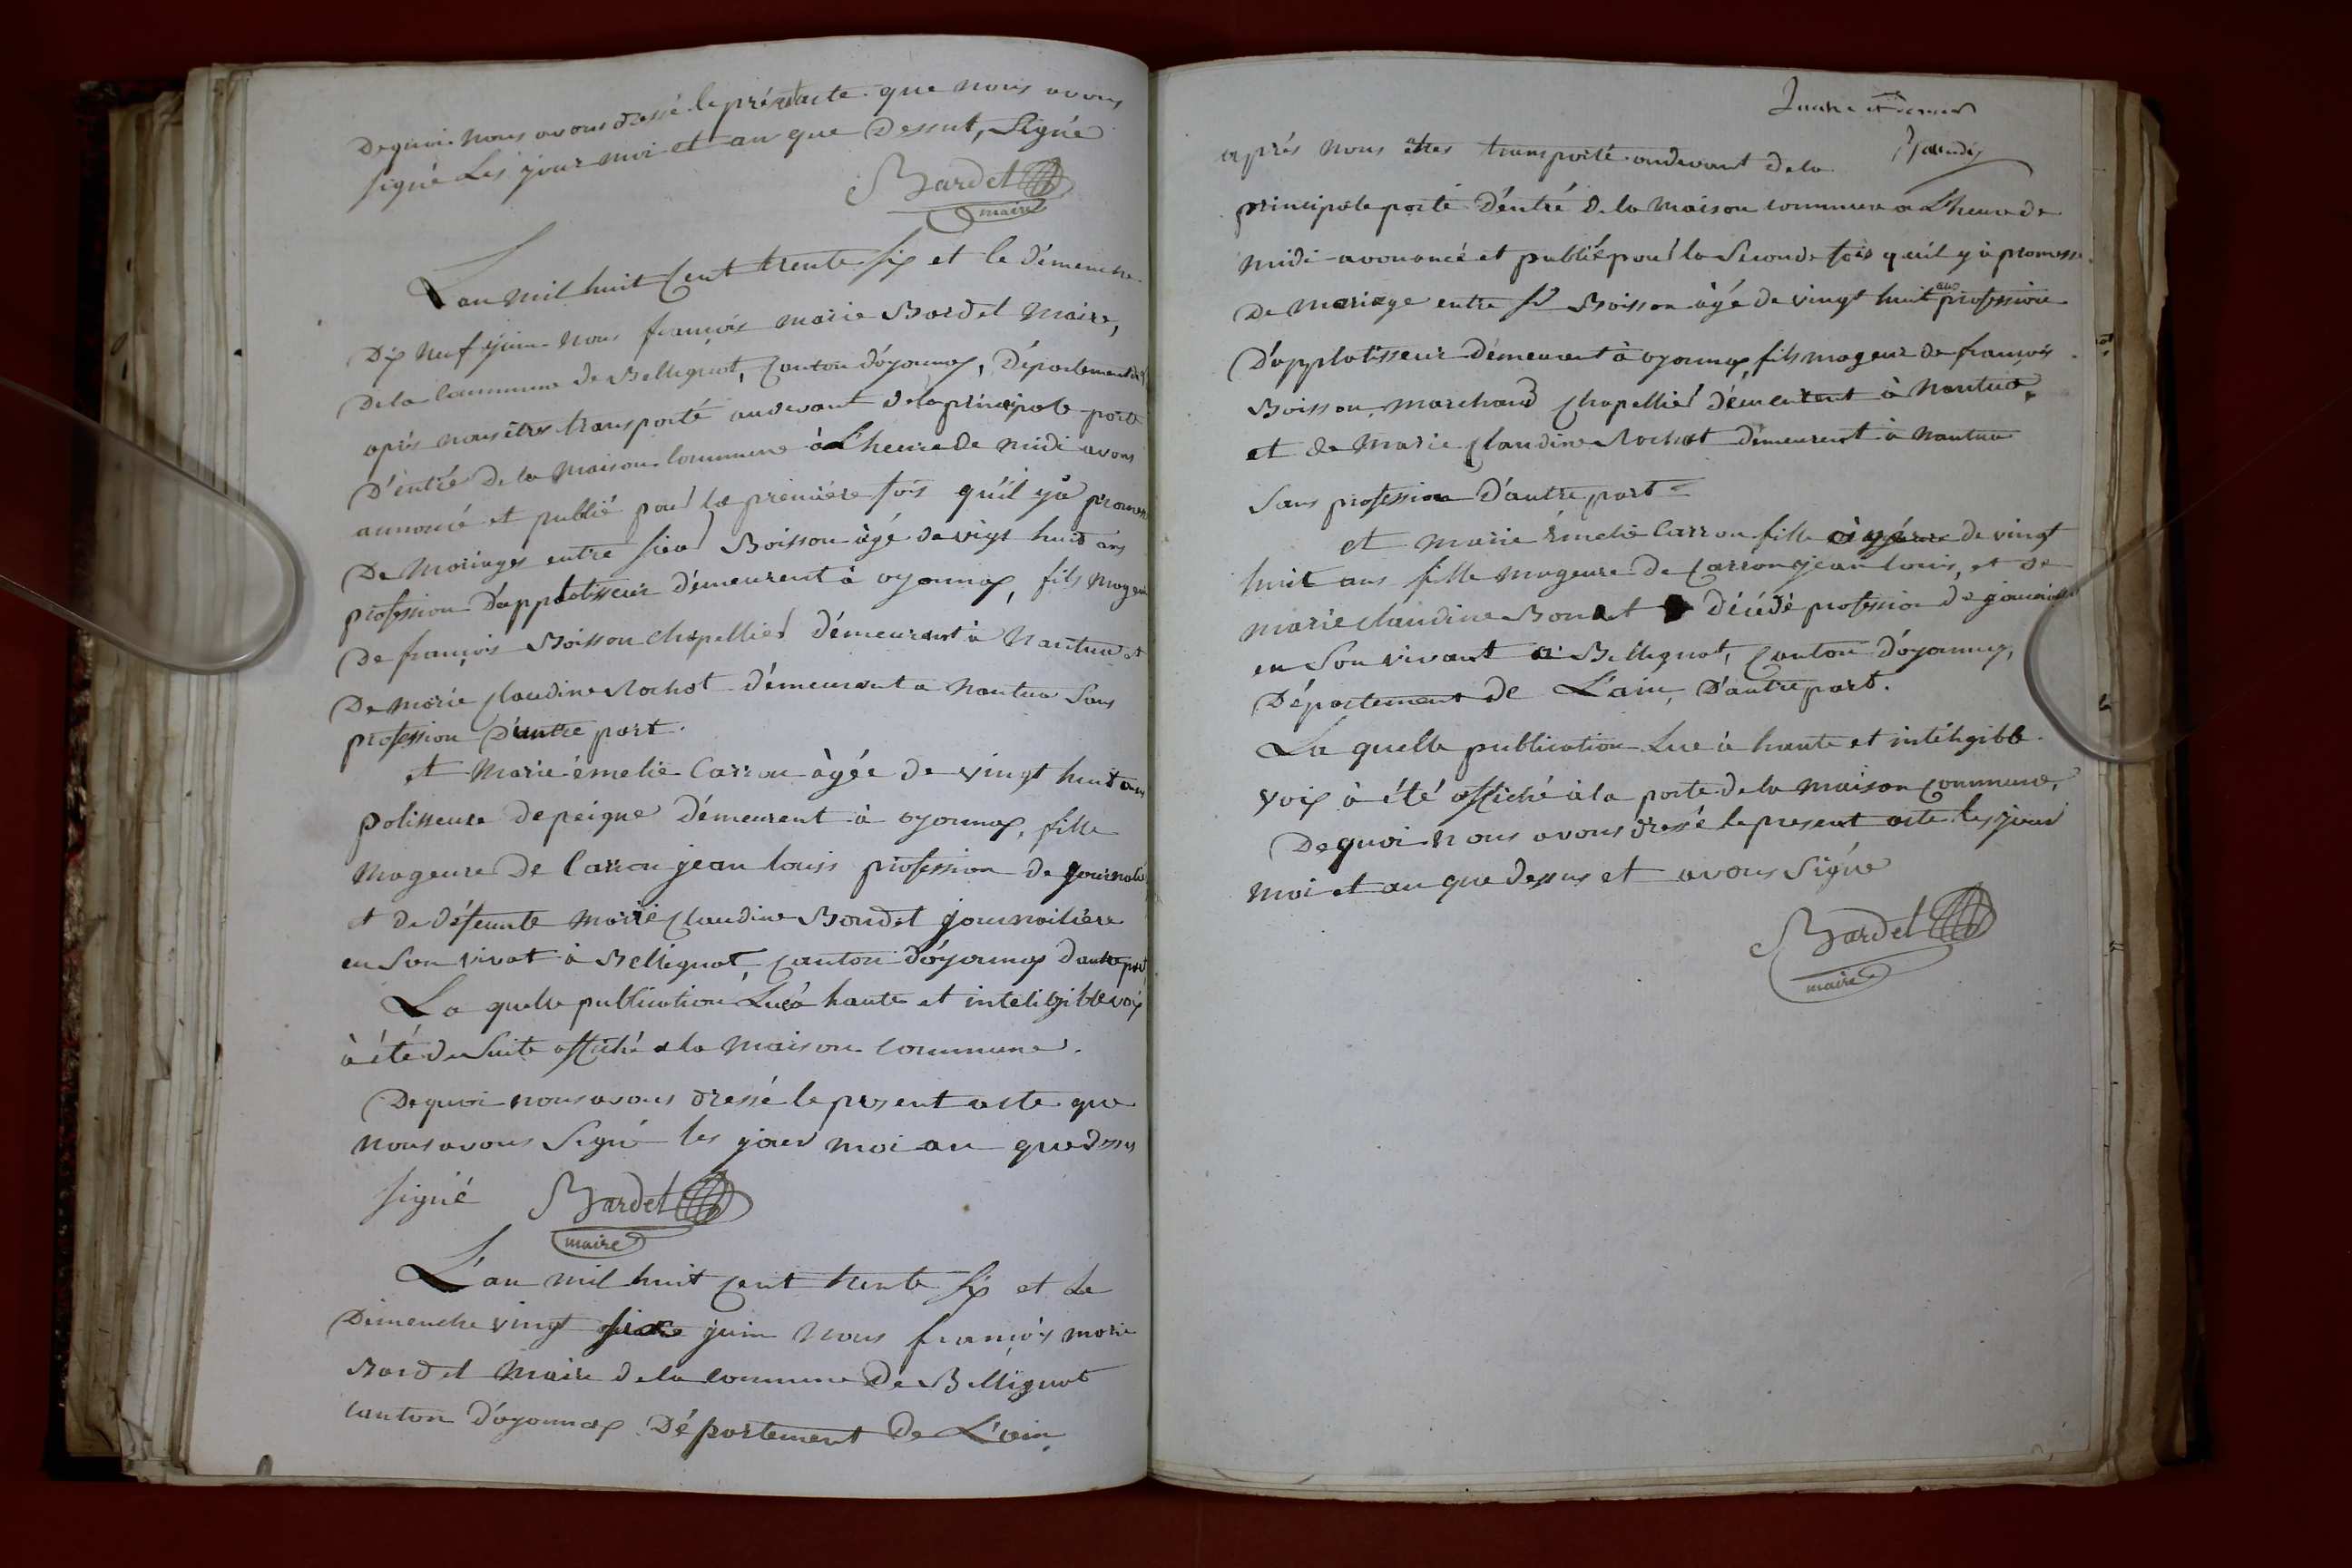 De quoi nous avons dressé le présent acte que nous avons
signé Les jour moi et an que Dessut, Signé
Bardet
maire
L'an mil huit Cent trente six et le démenche
Dix neuf juin nous françois marie Bardet Maire,
De la Commune de Bellignat, Canton d'óyonnax, Département de
après nous êtres transporté audevant dela principale porte
D'entré de la Maison Commune à L'heure de midi avons
annoncé et publié pour la première fois qu'il y à promes
De Mariages entre sieur Boisson âgé de vigt huit ans
profession D'applatisseur démeurent à oyonnax, fils Mageur
De françois Boisson chapellier démeurant à Nantua et
De Marie Claudine Rochat démeurant a Nantua Sans
profession D'autre part.
et Marie émelie Carron àgée de vingt huit ans
polisseuse de peigne Démeurent à oyonnax, fille
Mageure De Carron jean louis profession de journali
et de défeunte Marie Claudine Bondet journailière
en Son vivat à Bellignat, Canton d'óyonnax d'autre part
La quelle publication Lue à haute et inteligible voix
à été de Suite affiché a la Maison Commune.
De quoi nous avons dressé le present acte que
Nous avons Signé les jour moi an que dessus
signé Bardet
maire
L'an mil huit Cent trente Six et Le
Dimenche vingt six juin Nous françois marie
Bardet Maire de la Commune De Bellignat
Canton d'óyonnax Département De L'ain
après Nous êtres transporté audevant de la
principale porte D'éntré de la Maison commune a L'heure de
Midi avononcé et publié pour la Seconde fois qu'il y à promesse
De Mariage entre Sr Boisson àgé de vingt huit ans profession
D'applatisseur démeurent à oyonnax, fils mageur de françois
Boisson, Marchand Chapellier démeurent à Nantua,
et de Marie Claudine Rochat démeurent à Nantua
Sans profession D'autre part
et Marie émelie Carron fille àgée de vingt
huit ans fille Mageure de Carron jean louis, et de
Marie Claudine Bondet décédé profession de journali
en Son vivant à Bellignat, Canton d'óyonnax,
Département de L'ain, D'autre part.
La quelle publication Lue à haute et intéligible
Voix à été affiché à la porte de la Maison Commune,
De quoi Nous avons dressé le present acte les jour
Moi et an que dessus et avons Signé
Bardet
maire